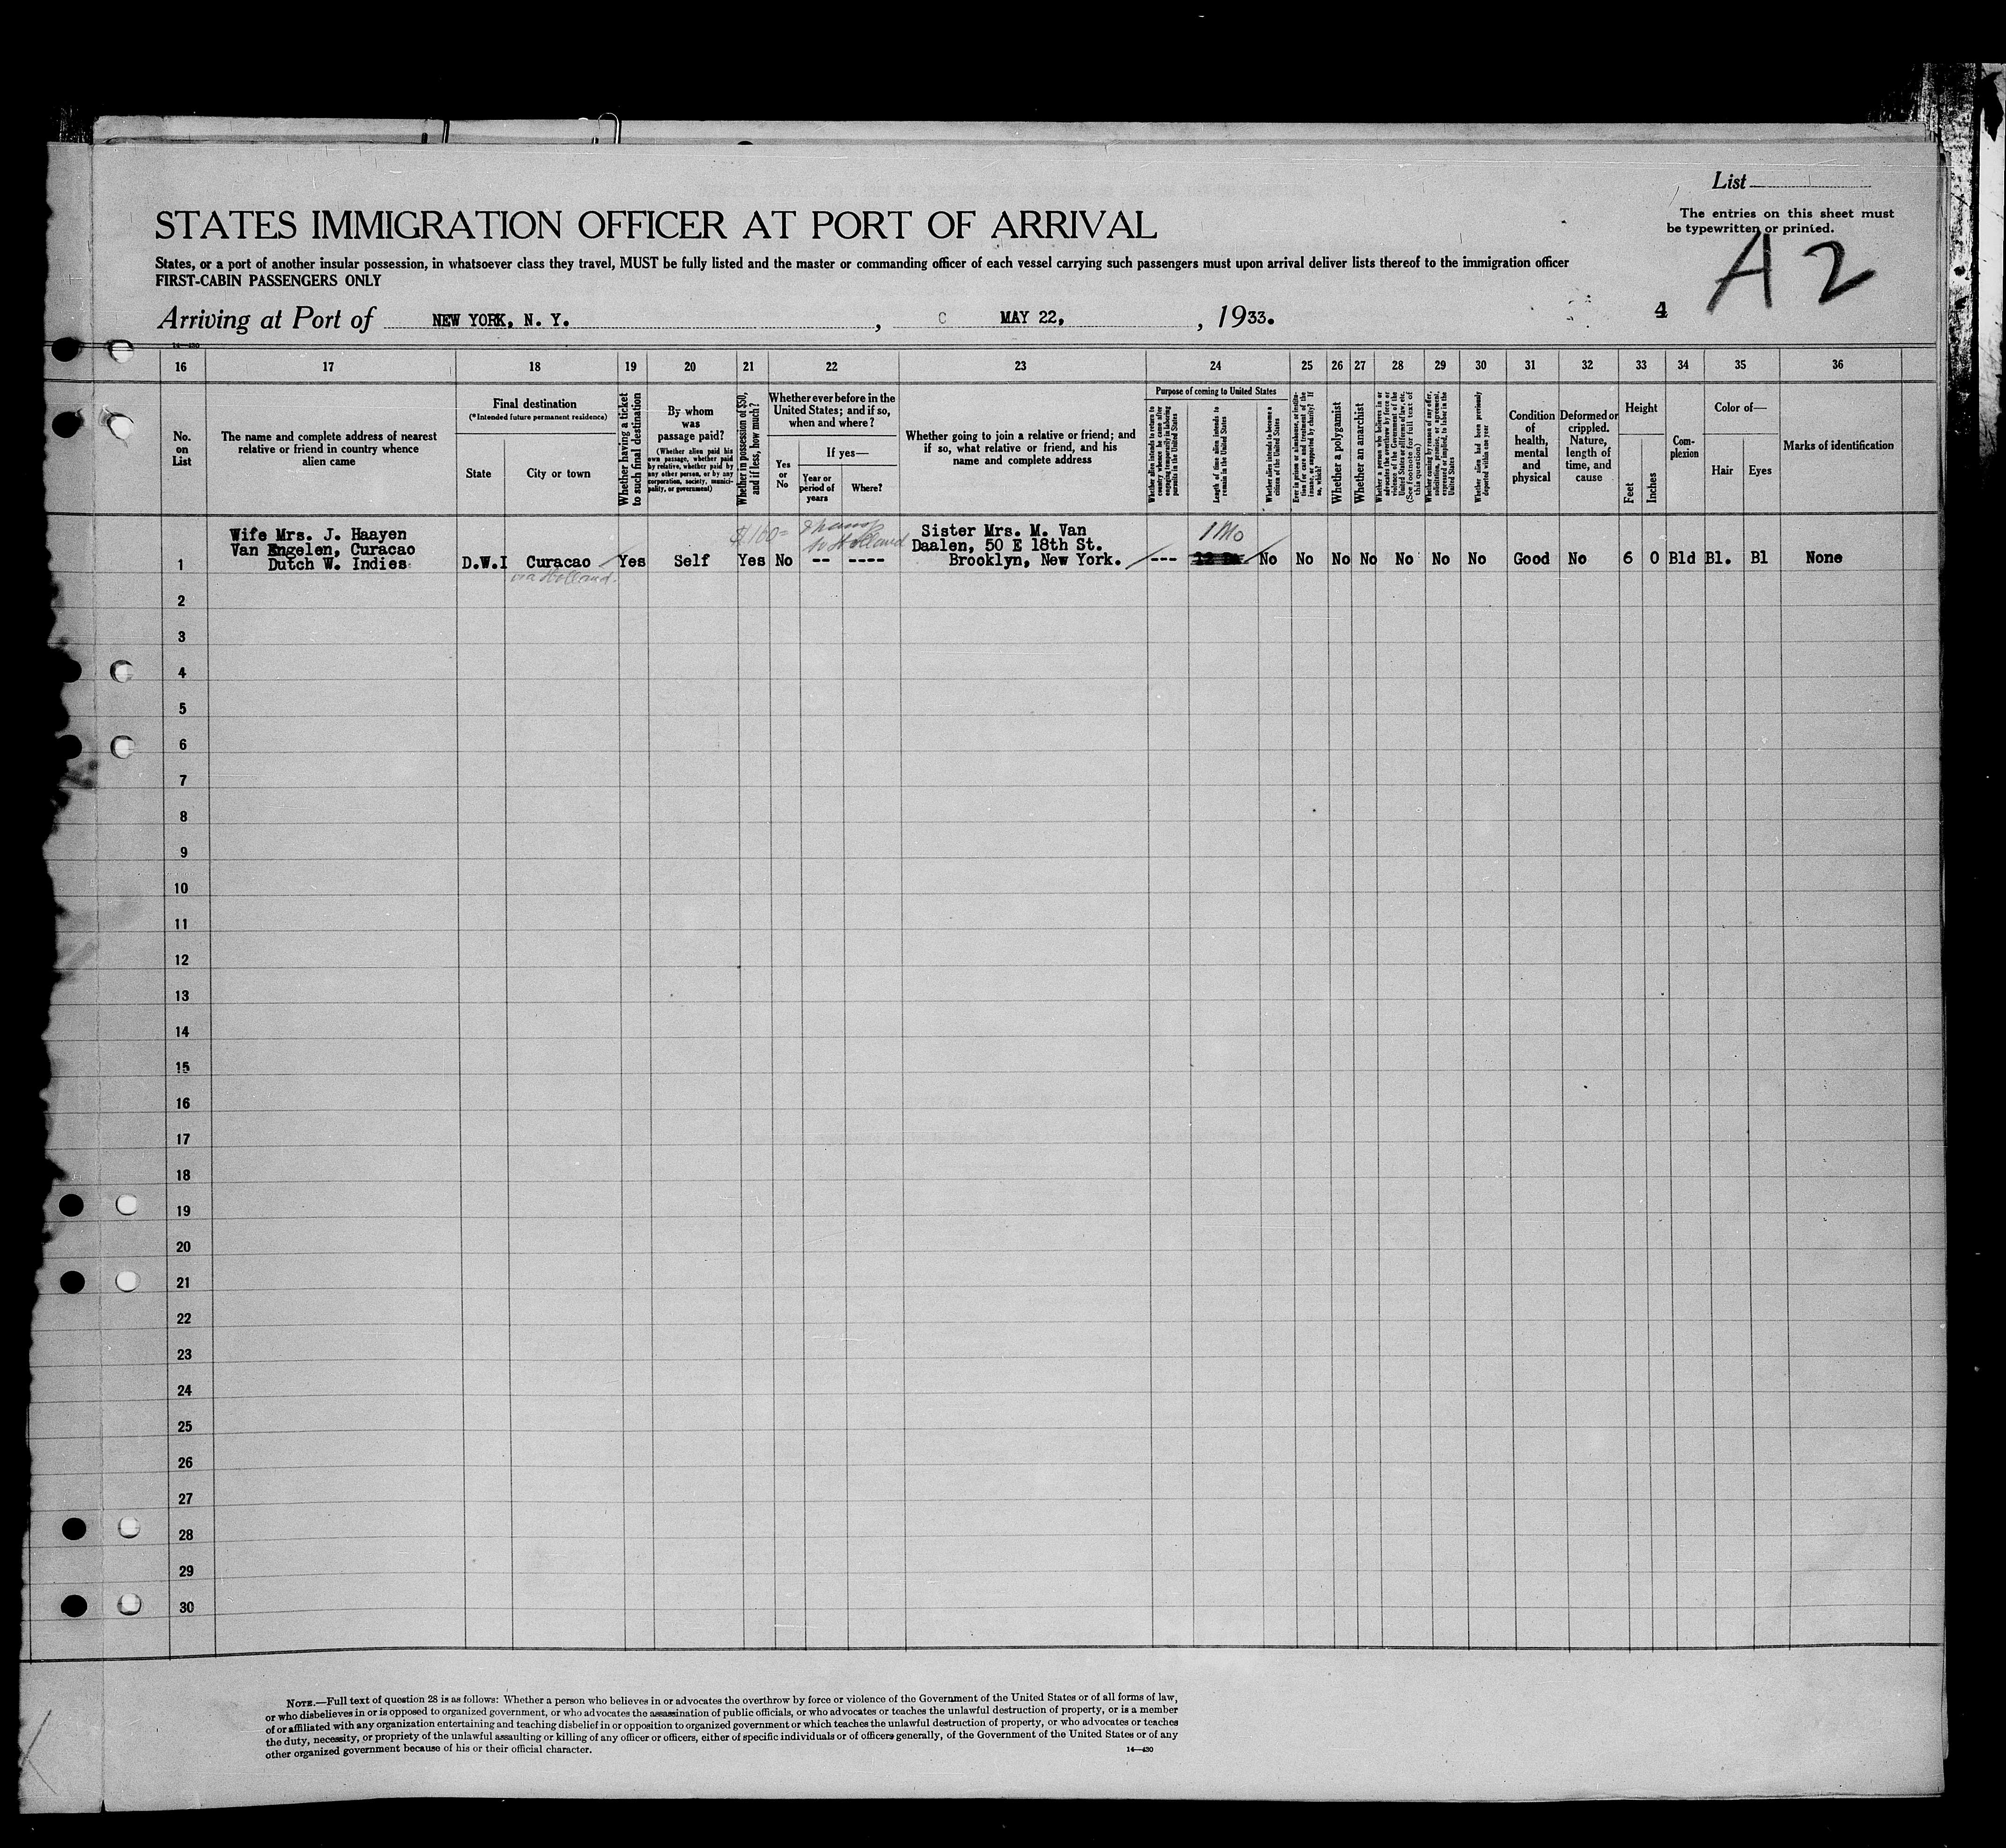 List
STATES IMMIGRATION OFFICER AT PORT OF ARRIVAL
The entries on this sheet must
be typewritten or printed.
States, or a port of another insular possession, in whatsoever class they travel, MUST be fully listed and the master or commanding officer of each vessel carrying such passengers must upon arrival deliver lists thereof to the immigration officer
FIRST-CABIN PASSENGERS ONLY
A2
Arriving at Port of NEW YORK, N. Y. , C MAY 22, , 1933.
4
14—430
16 17 18 19 20 21 22 23 24 25 26 27 28 29 30 31 32 33 34 35 36
No.
on
List
The name and complete address of nearest
relative or friend in country whence
alien came
Final destination
(*Intended future permanent residence)
State
City or town
Whether having a ticket
to such final destination
By whom
was
passage paid?
(Whether alien paid his
own passage, whether paid
by relative, whether paid by
any other person, or by any
corporation, society, munici-
pality, or government)
Whether in possession of $50,
and if less, how much?
Whether ever before in the
United States; and if so,
when and where?
Yes
or
No
If yes—
Year or
period of
years
Where?
Whether going to join a relative or friend; and
if so, what relative or friend, and his
name and complete address
Purpose of coming to United States
Whether alien intends to return to
country whence he came after
engaging temporarily in laboring
pursuits in the United States
Length of time alien intends to
remain in the United States
Whether alien intends to become a
citizen of the United States
Ever in prison or almshouse, or institu-
tion for care and treatment of the
insane, or supported by charity? If
so, which?
Whether a polygamist
Whether an anarchist
Whether a person who believes in or
advocates the overthrow by force or
violence of the Government of the
United States or all forms of law, etc.
(See footnote for full text of
this question)
Whether coming by reason of any offer,
solicitation, promise, or agreement,
expressed or implied, to labor in the
United States
Whether alien had been previously
deported within one year
Condition
of
health,
mental
and
physical
Deformed or
crippled.
Nature,
length of
time, and
cause
Height
Feet
Inches
Com-
plexion
Color of—
Hair
Eyes
Marks of identification
Wife Mrs. J. Haayen
Van Engelen, Curacao
Dutch W. Indies
$160=
to Holland
Sister Mrs. M. Van
Daalen, 50 E 18th St.
Brooklyn, New York.
1 Mo
1 D.W.I Curacao Yes Self Yes No -- ---- --- No No No No No No No Good No 6 0 Bld Bl. Bl None
via Holland.
2
3
4
5
6
7
8
9
10
11
12
13
14
15
16
17
18
19
20
21
22
23
24
25
26
27
28
29
30
NOTE.—Full text of question 28 is as follows: Whether a person who believes in or advocates the overthrow by force or violence of the Government of the United States or of all forms of law,
or who disbelieves in or is opposed to organized government, or who advocates the assassination of public officials, or who advocates or teaches the unlawful destruction of property, or is a member
of or affiliated with any organization entertaining and teaching disbelief in or opposition to organized government or which teaches the unlawful destruction of property, or who advocates or teaches
the duty, necessity, or propriety of the unlawful assaulting or killing of any officer or officers, either of specific individuals or of officers generally, of the Government of the United States or of any
other organized government because of his or their official character.
14—430